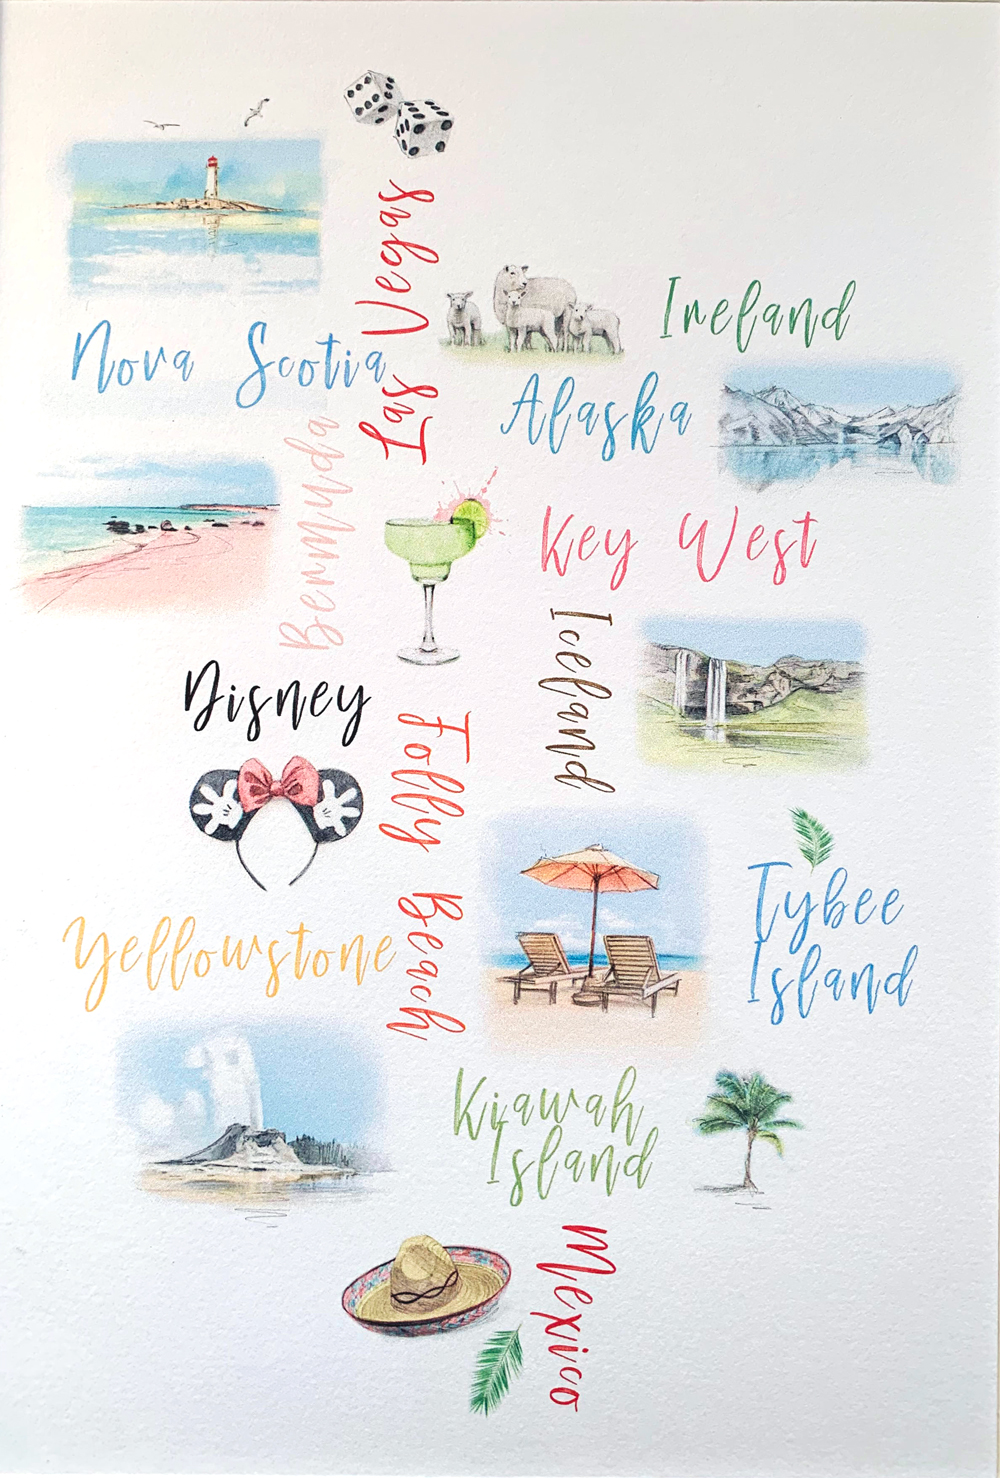 Las Vegas
Nova Scotia
Ireland
Alaska
Bermuda
Key West
Iceland
Disney
Folly Beach
Tybee
Island
Yellowstone
Kiawah
Island
Mexico